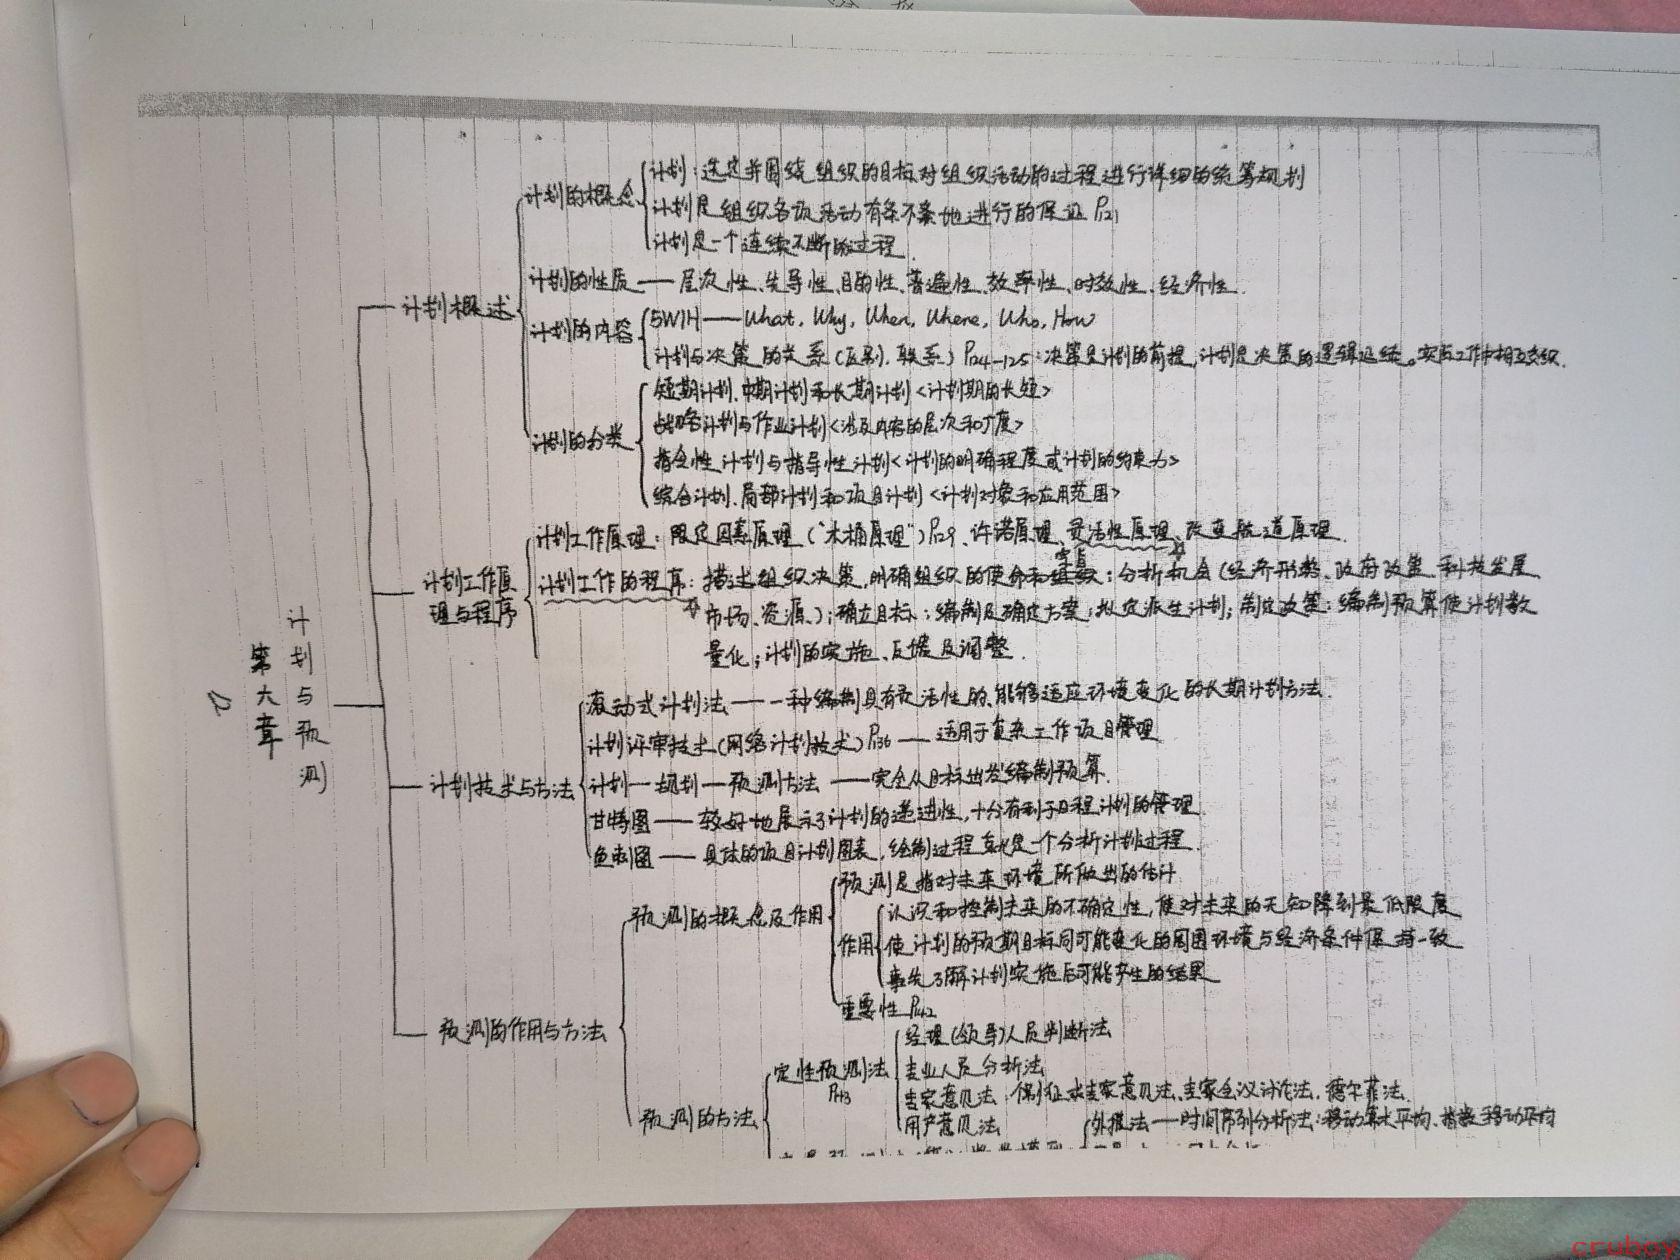 计划的概念
计划：选定并围绕组织的目标对组织活动的过程进行详细的统筹规划
计划是组织各项活动有条不紊地进行的保证 P121
计划是一个连续不断的过程.
计划概述
计划的性质——层次性、先导性、目的性、普遍性、效率性、时效性、经济性.
计划的内容
5W1H——What, Why, When, Where, Who, How
计划与决策的关系(区别、联系) P124-125：决策是计划的前提,计划是决策的逻辑延续。实际工作中相互交织.
计划的分类
短期计划、中期计划和长期计划<计划期的长短>
战略计划与作业计划<涉及内容的层次和广度>
指令性计划与指导性计划<计划的明确程度或计划的约束力>
综合计划、局部计划和项目计划<计划对象和应用范围>
计划工作原理与程序
计划工作原理：限定因素原理("木桶原理")P129、许诺原理、灵活性原理、改变航道原理.
计划工作的程序：描述组织决策,明确组织的使命和宗旨；分析机会(经济形势、政府政策、科技发展
市场、资源)；确立目标；编制及确定方案；拟定派生计划；制定政策；编制预算使计划数
量化；计划的实施、反馈及调整.
第六章
计划与预测
计划技术与方法
滚动式计划法——一种编制具有灵活性的、能够适应环境变化的长期计划方法.
计划评审技术(网络计划技术)P136——适用于复杂工作项目管理
计划—规划—预测方法——完全从目标出发编制预算.
甘特图——较好地展示了计划的递进性,十分有利于日程计划的管理.
鱼刺图——具体的项目计划图表,绘制过程就是一个分析计划过程.
预测的作用与方法
预测的概念及作用
预测是指对未来环境所做出的估计
作用
认识和控制未来的不确定性,使对未来的无知降到最低限度
使计划的预期目标同可能变化的周围环境与经济条件保持一致
事先了解计划实施后可能产生的结果
重要性 P142
预测的方法
定性预测法
P143
经理(领导)人员判断法
专业人员分析法
专家意见法：个别征求专家意见法、专家会议讨论法、德尔菲法.
用户意见法
外推法——时间序列分析法：移动算术平均、指数移动平均
cruboy